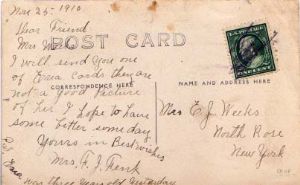 Mar 25 - 1910
Dear Friend
Mrs
POST CARD
I will send you one
of Erea Cards they are
not a Good Picture
CORRESPONDENCE HERE
NAME AND ADDRESS HERE
of her I hope to have
some better some day
Yours in Best wishes
Mrs. F. J. Fenk
was three year old yesterday
Mrs E J Weeks
North Rose
New York